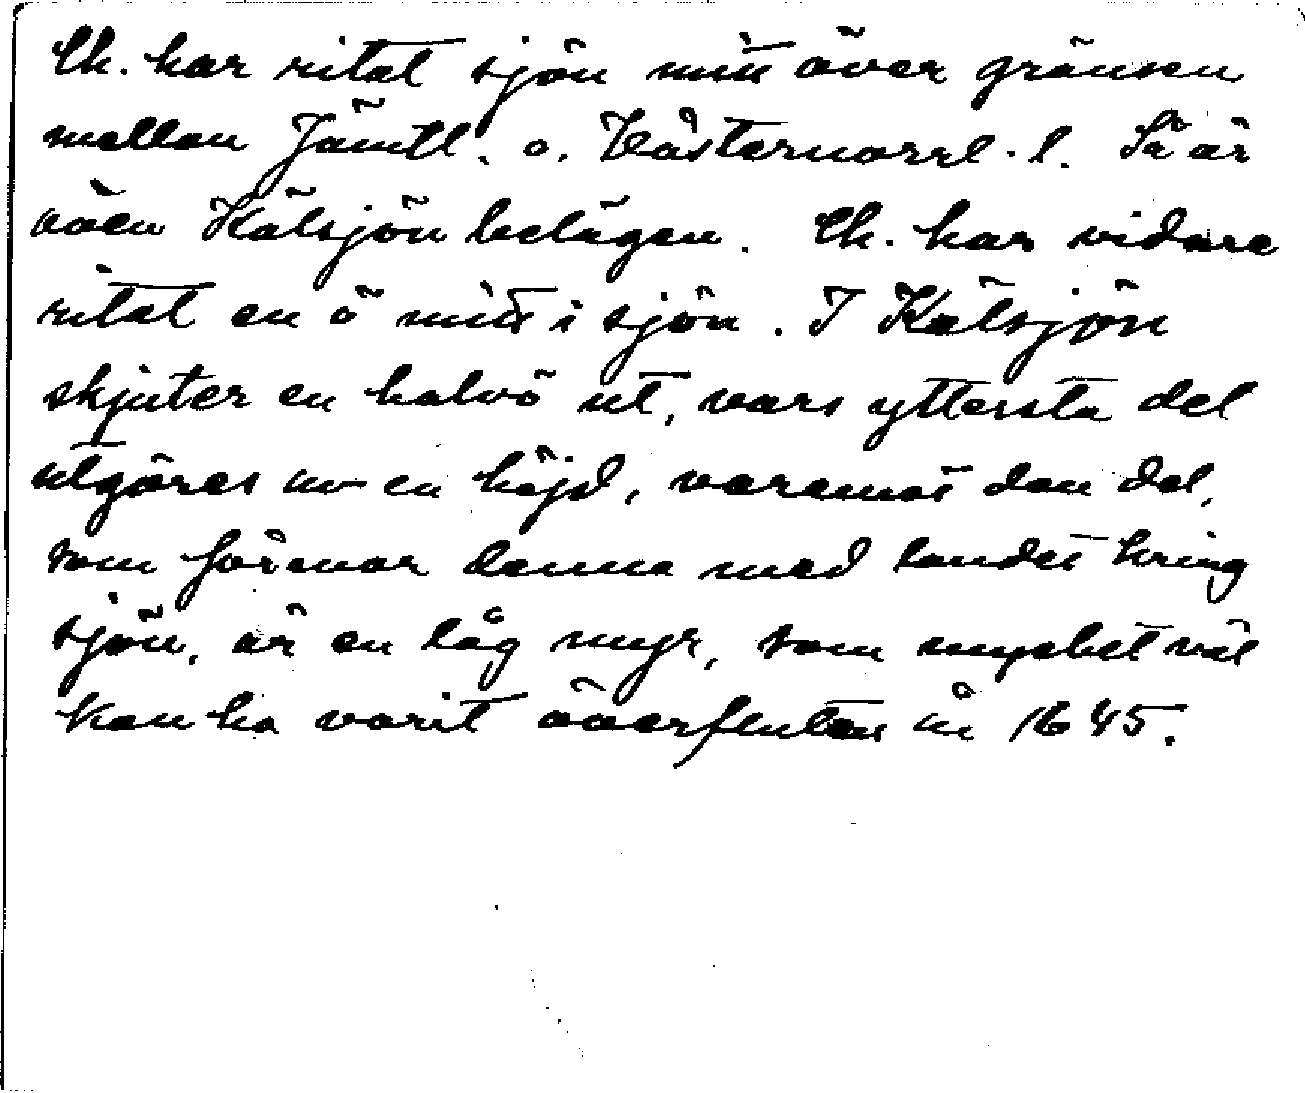 Ch. har ritat sjön mitt över gränsen
mellan Jämtl. o. Västernorrl. l. Så är
även Kälsjön belägen. Ch. har vidare
ritat en ö mitt i sjön. I Kälsjön
skjuter en halvö ut, vars yttersta del
utgöres av en höjd, varemot den del,
som förenar denna med landet kring
sjön, är en låg myr, som mycket väl
kan ha varit översvluten år 1645.